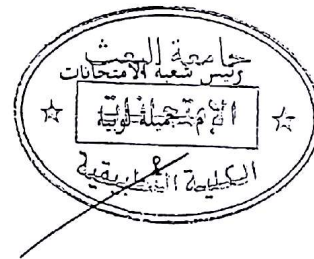 جامعة البعث
رئيس شعبة الامتحانات
جميلة لوبية
الكلية التطبيقية